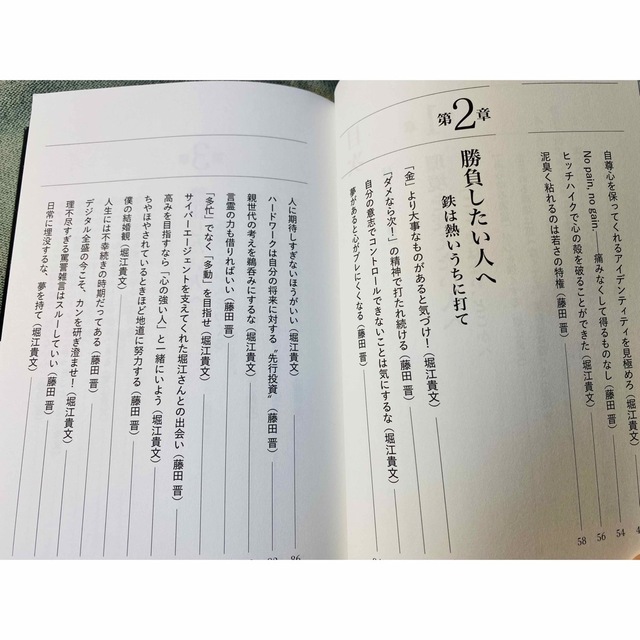 自尊心を保ってくれるアイデンティティを見極めろ（堀江貴文）
No pain, no gain——痛みなくして得るものなし（藤田 晋） 54
ヒッチハイクで心の殻を破ることができた（堀江貴文） 56
泥臭く粘れるのは若さの特権（藤田 晋） 58
第2章
勝負したい人へ
鉄は熱いうちに打て
「金」より大事なものがあると気づけ！（堀江貴文）
「ダメなら次！」の精神で打たれ続ける（藤田 晋）
自分の意志でコントロールできないことは気にするな（堀江貴文）
夢があると心がブレにくくなる（藤田 晋）
人に期待しすぎないほうがいい（堀江貴文） 86
ハードワークは自分の将来に対する“先行投資”（藤田 晋）
親世代の考えを鵜呑みにするな（堀江貴文）
言霊の力も借りればいい（藤田 晋）
「多忙」でなく「多動」を目指せ（堀江貴文）
サイバーエージェントを支えてくれた堀江さんとの出会い（藤田 晋）
高みを目指すなら「心の強い人」と一緒にいよう（堀江貴文）
ちやほやされているときほど地道に努力する（藤田 晋）
僕の結婚観（堀江貴文）
人生には不幸続きの時期だってある（藤田 晋）
デジタル全盛の今こそ、カンを研ぎ澄ませ！（堀江貴文）
理不尽すぎる罵詈雑言はスルーしていい（藤田 晋）
日常に埋没するな、夢を持て（堀江貴文）